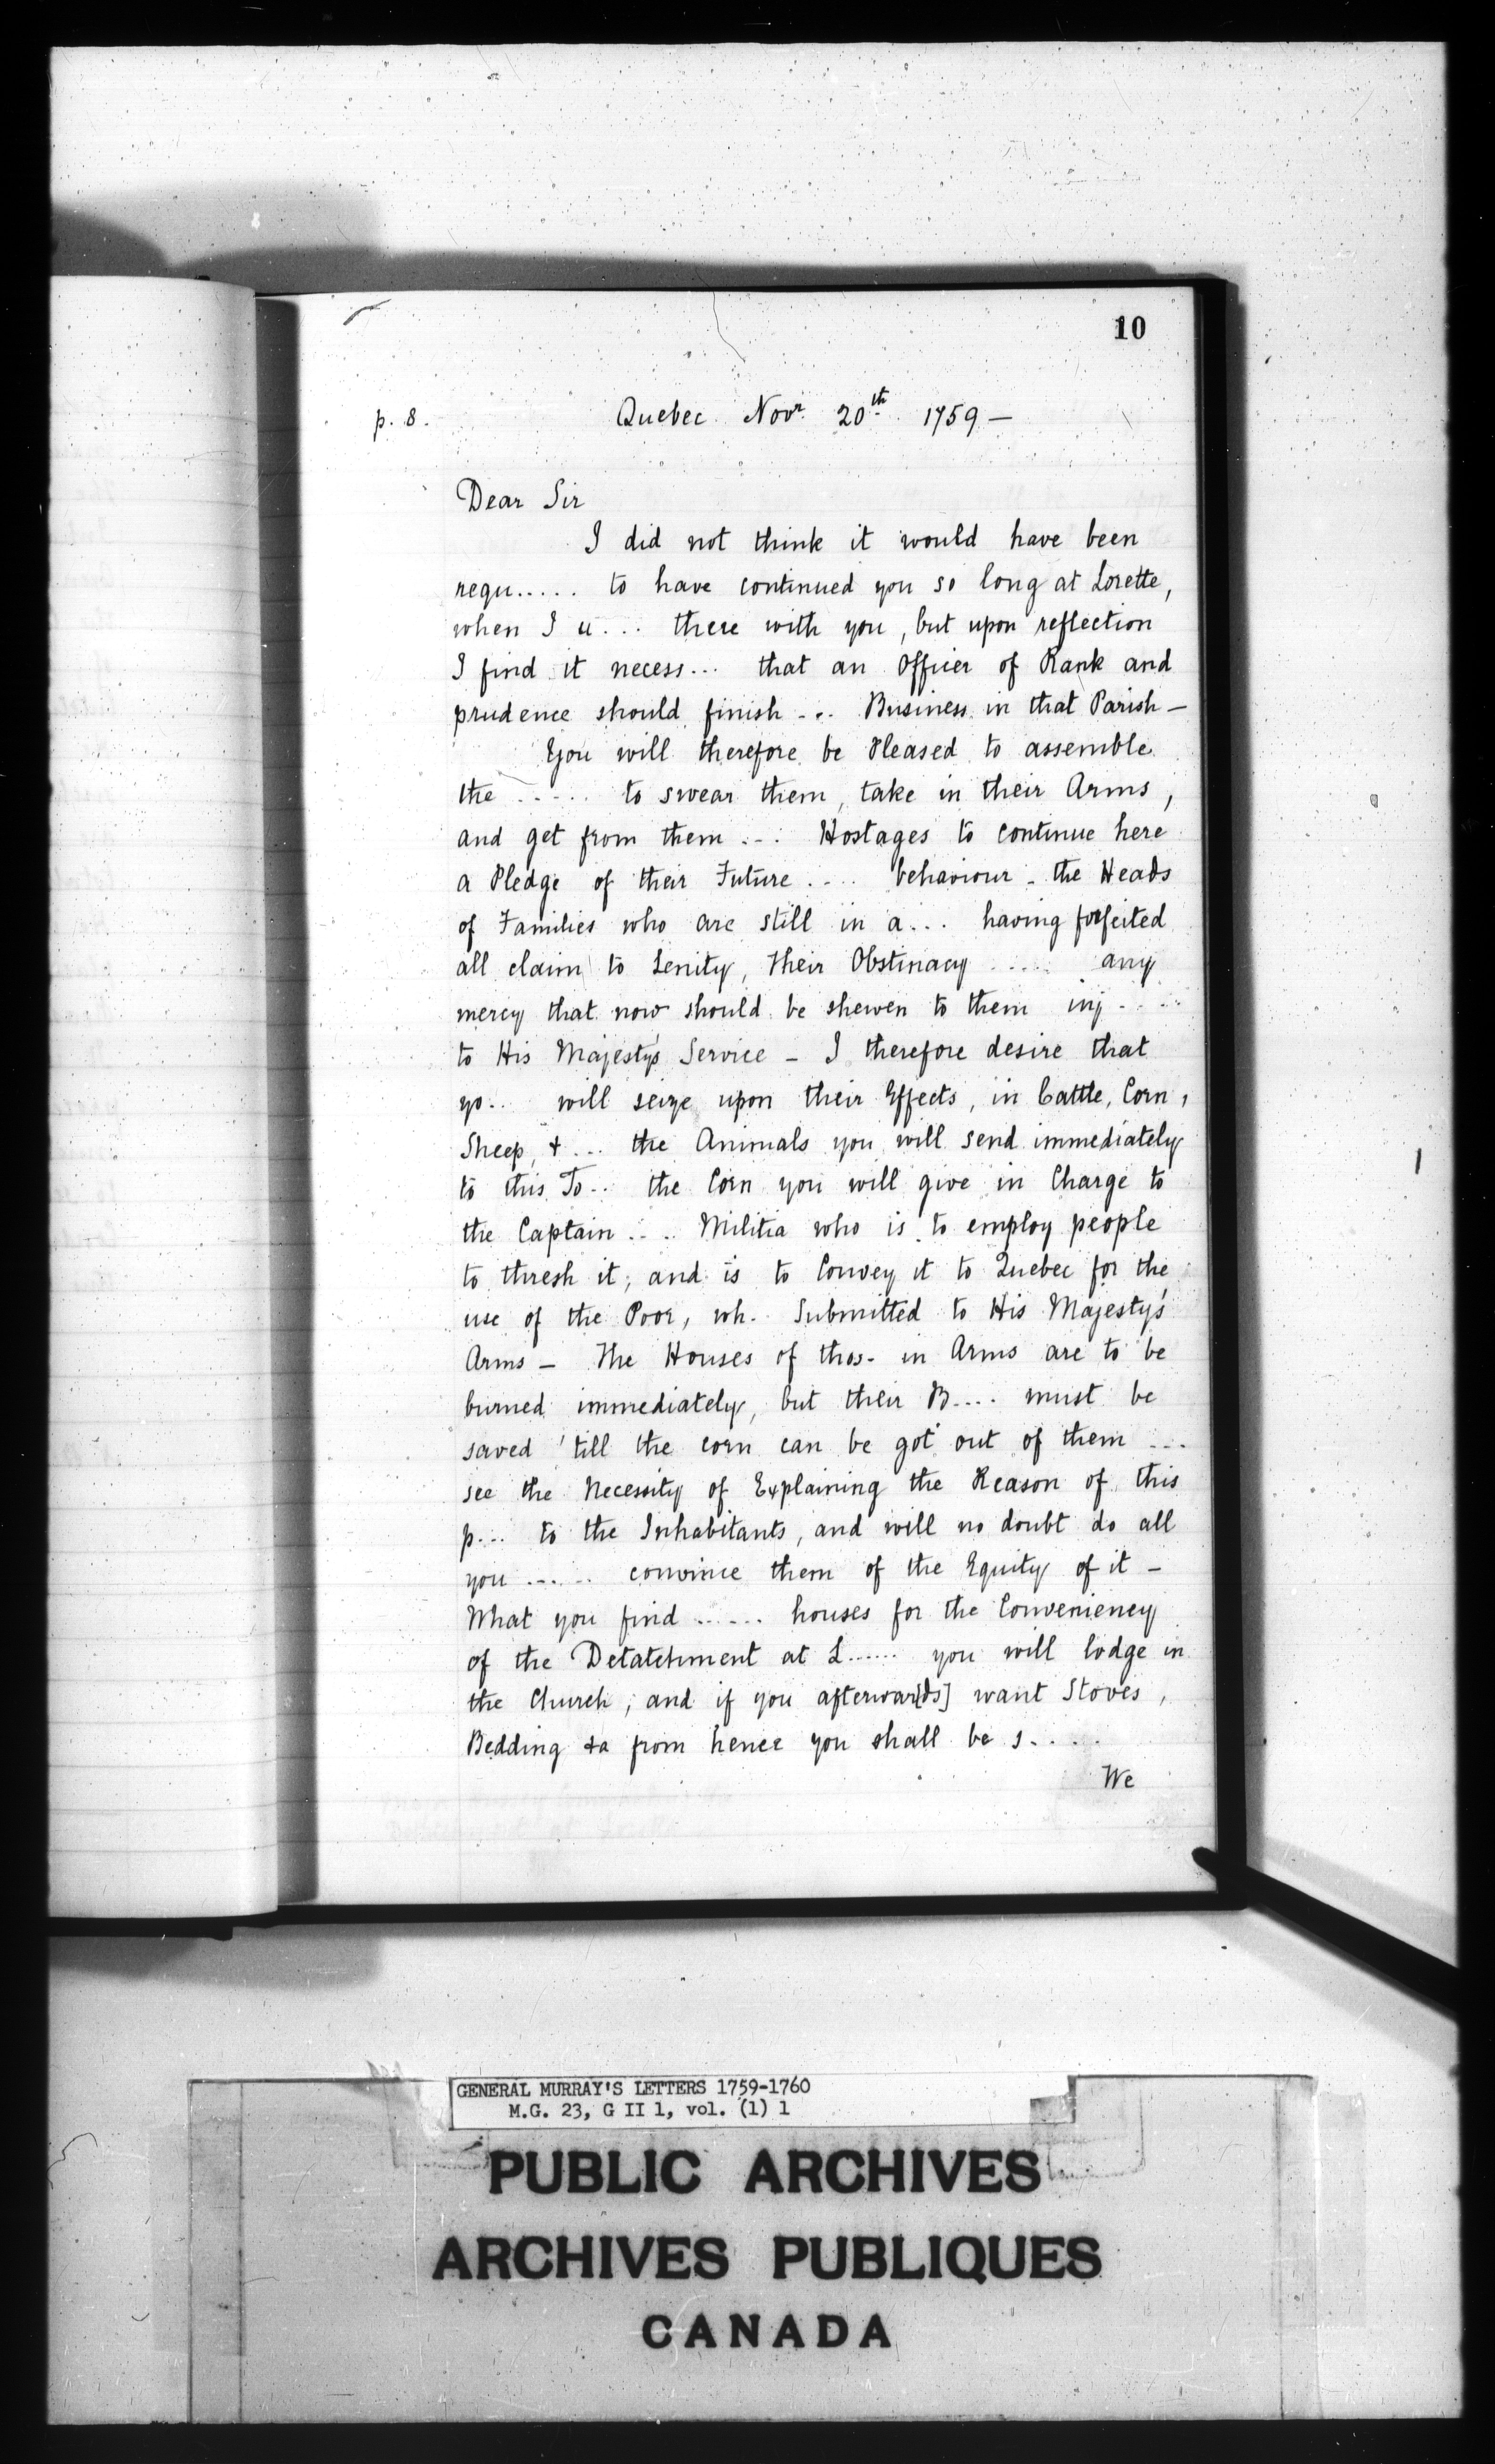 10
p. 8. Quebec Novr 20th 1759 —
Dear Sir
I did not think it would have been
requ..... to have continued you so long at Lorette,
when I u... there with you, but upon reflection
I find it necess... that an Officer of Rank and
prudence should finish ... Business in that Parish —
You will therefore be Pleased to assemble
the ..... to swear them, take in their Arms,
and get from them ... Hostages to continue here
a Pledge of their Future .... behaviour - the Heads
of Families who are still in a... having forfeited
all claim to Lenity, their Obstinacy ..... any
mercy that now should be shewen to them inj....
to His Majesty's Service — I therefore desire that
yo.. will seize upon their Effects, in Cattle, Corn,
Sheep, & ... the Animals you will send immediately
to this To.. the Corn you will give in Charge to
the Captain .... Militia who is to employ people
to thresh it; and is to Convey it to Quebec for the
use of the Poor, wh. Submitted to His Majesty's
Arms — The Houses of thos- in Arms are to be
burned immediately, but their B.... must be
saved 'till the corn can be got out of them ...
see the Necessity of Explaining the Reason of this
p... to the Inhabitants, and will no doubt do all
you ...... convince them of the Equity of it —
What you find ...... houses for the Conveniency
of the Detatchment at L...... you will lodge in
the Church, and if you afterwar[ds] want Stoves,
Bedding &a from hence you shall be s.....
We
GENERAL MURRAY'S LETTERS 1759-1760
M.G. 23, G II 1, vol. (1) 1
PUBLIC ARCHIVES
ARCHIVES PUBLIQUES
CANADA